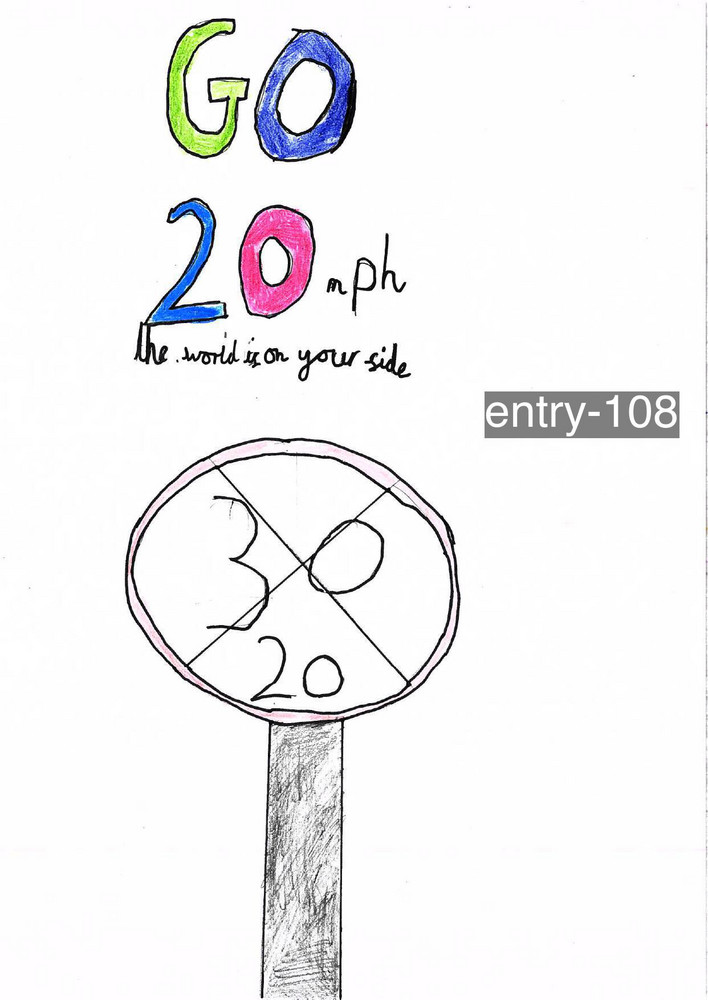 GO
20 mph
the world is on your side
entry-108
30
20